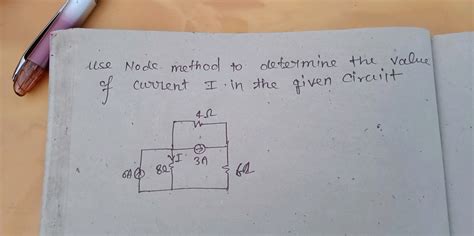 Use Node method to determine the value
of current I in the given circuit
4Ω
I
3A
6A
8Ω
6Ω